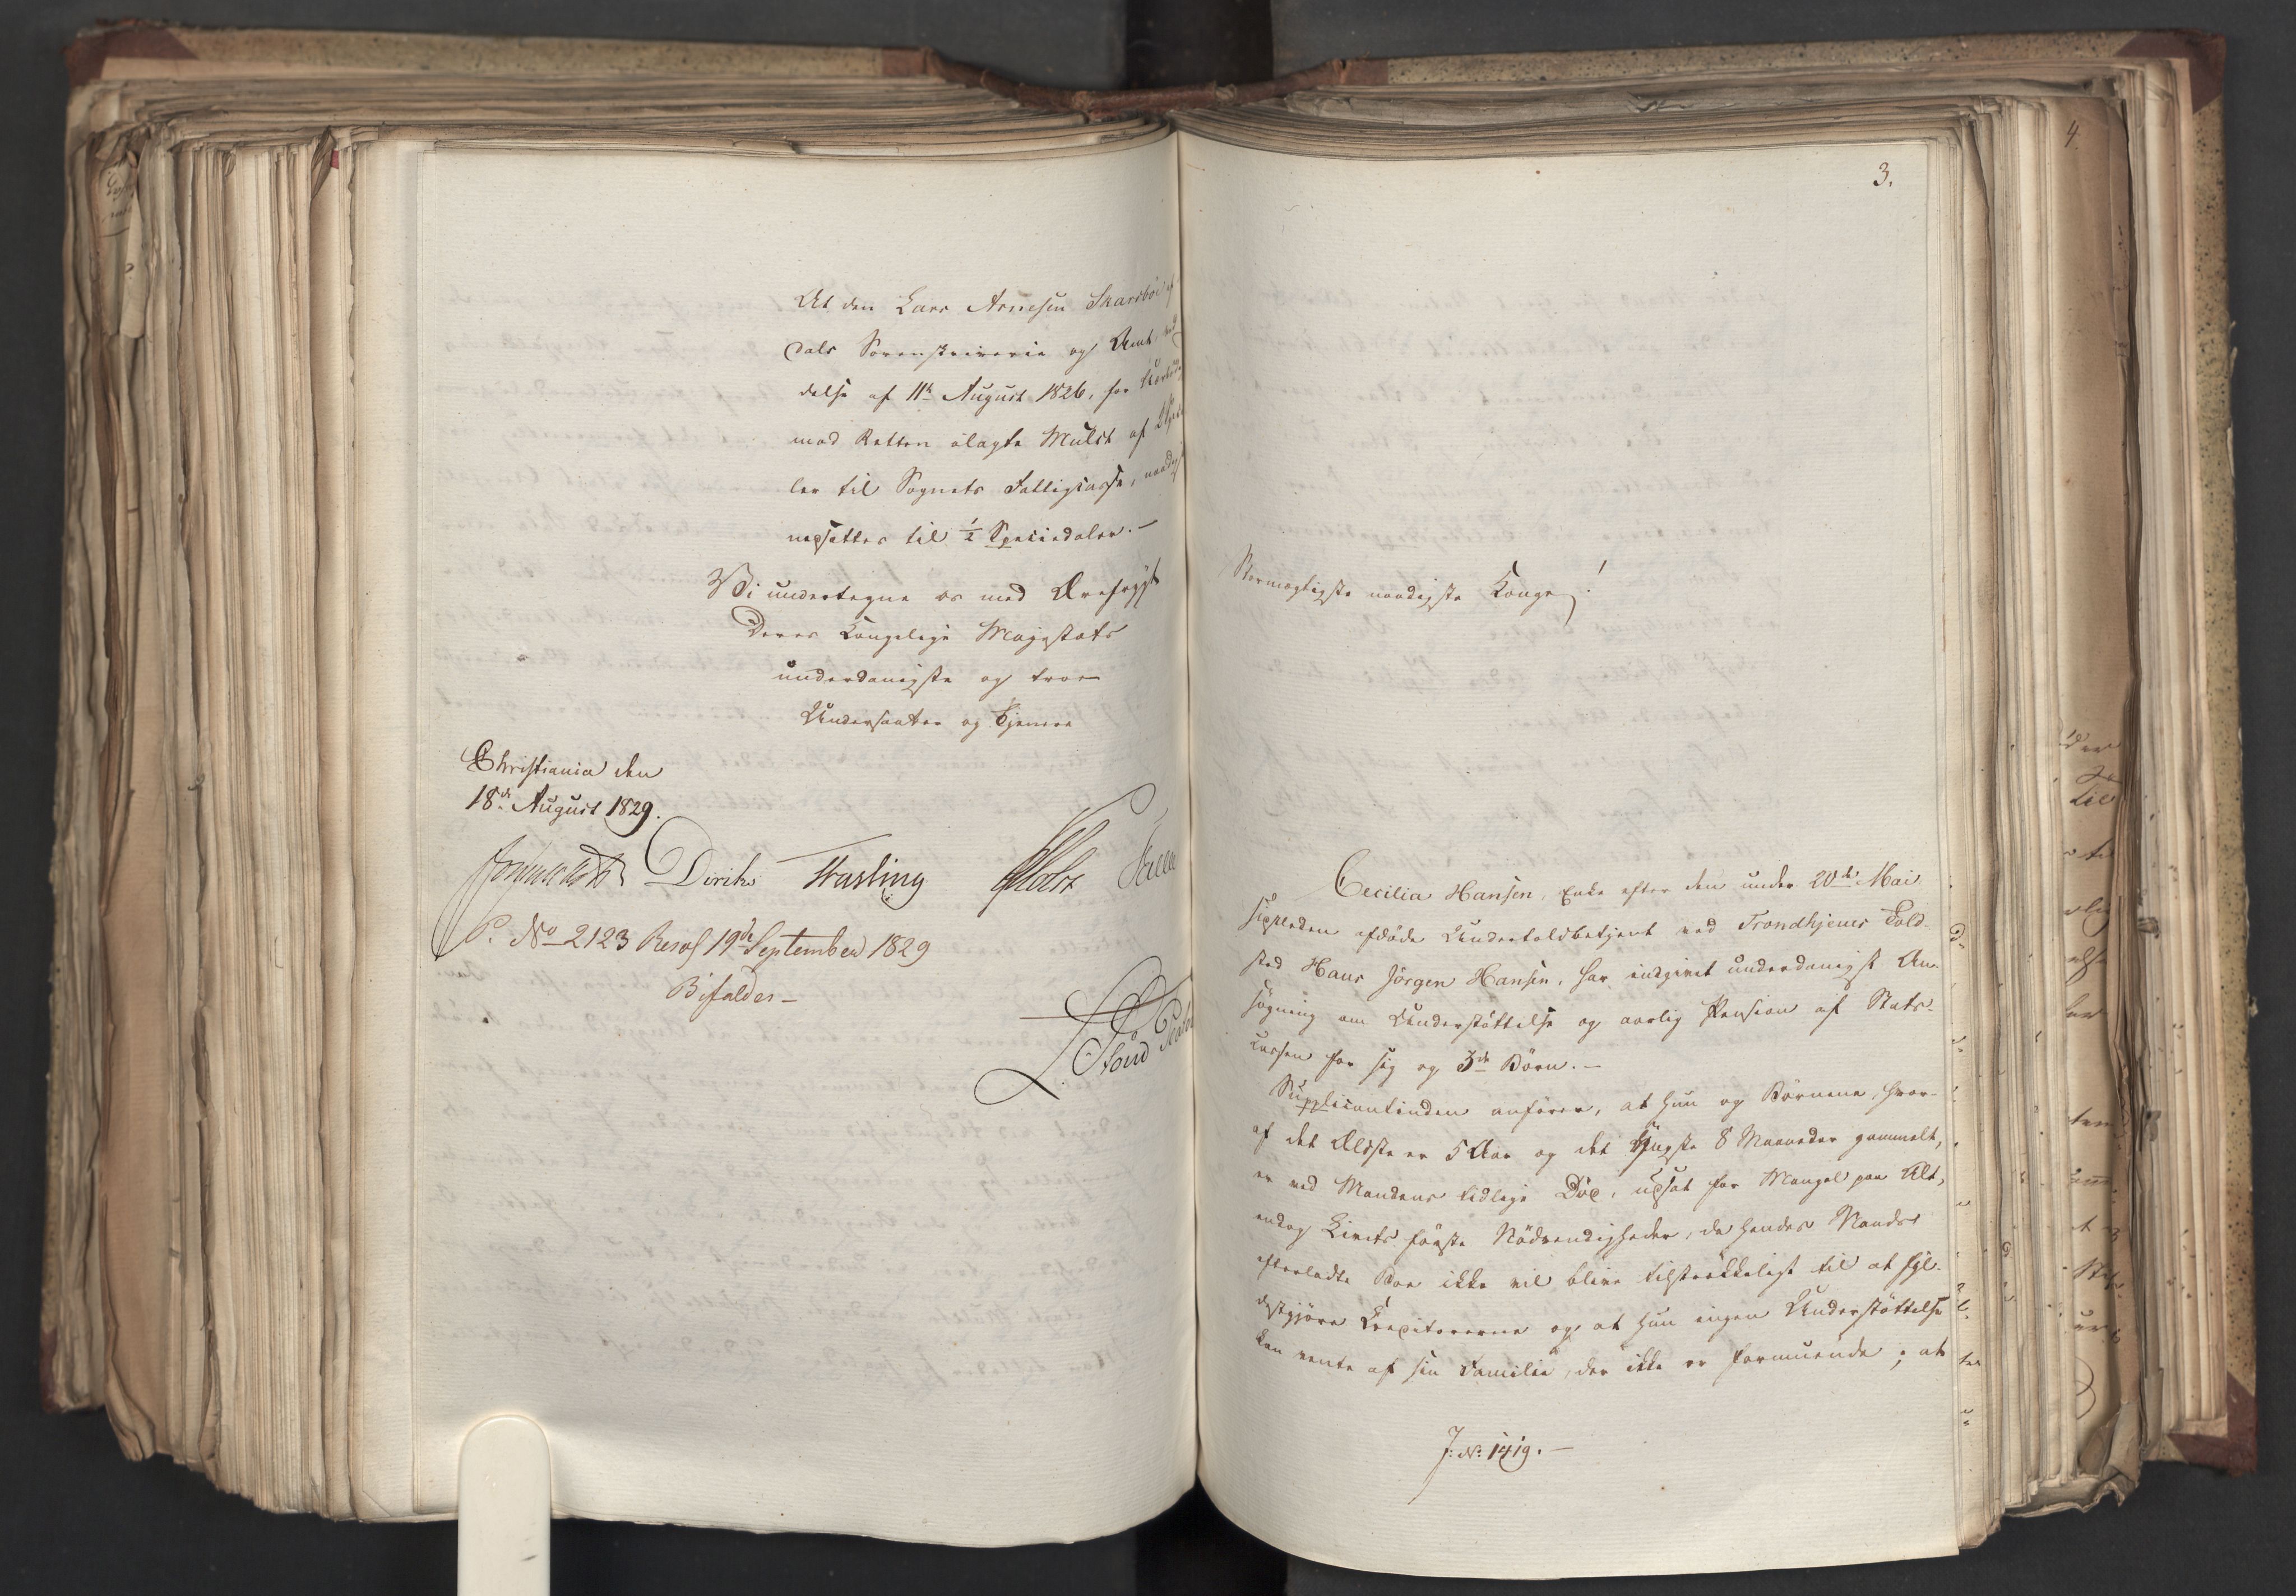 At den Lars Arnesen Skarsbøe
dals Sorenskriverie og Amt
delse af 11te August 1826, for
mod Retten ilagte Mulct af
ler til Sognets Fattigcasse,
nedsættes til ½ Speciedaler.—
Vi undertegne os med Ærefrygt
Deres Kongelige Majestæts
underdanigste og troe
Undersaatter og Tjenere
Christiania den
18de August 1829.
Diriks
P. No 2123 Resol 19de September 1829
Bifaldes—
3.
Stormægtigste naadigste Konge!
Cecilia Hansen, Enke efter den under 20de Mai
sidstleden afdøde Undertoldbetjent ved Trondhjems Told-
sted Hans Jörgen Hansen, har indgivet underdanigst An-
søgning om Understøttelse og aarlig Pension af Stats-
kassen for sig og 3de Börn.—
Supplicantinden anförer, at hun og Börnene, hvor-
af det Ældste er 5 Aar og det Yngste 8 Maaneder gammelt,
er ved Mandens tidlige Död, udsat for Mangel paa Alt,
endog Livets förste Nödvendigheder, da hendes Mands
efterladte Boe ikke vil blive tilstrækkeligt til at fyl-
destgjöre Creditorerne og at hun ingen Understöttelse
kan vente af sin Familie, der ikke er formuende; at
J: No: 1419.—
4.